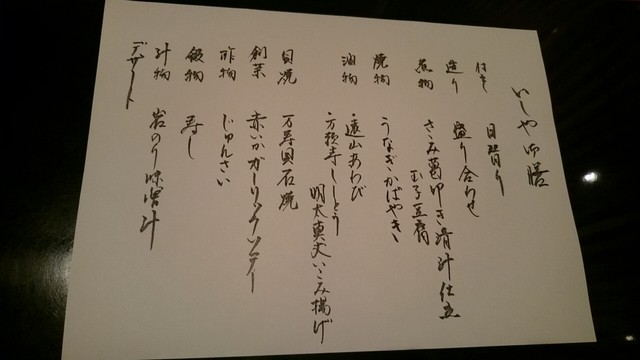 いしや御膳
付き 日替り
造り 盛り合わせ
煮物 ささみ葛叩き清汁仕立
玉子豆腐
焼物 うなぎかばやき
油物 ・遠山あわび
・万願寺ししとう
明太真丈いこみ揚げ
貝焼 万寿貝石焼
創菜 赤いかガーリックソテー
酢物 じゅんさい
飯物 寿し
汁物 岩のり味噌汁
デザート